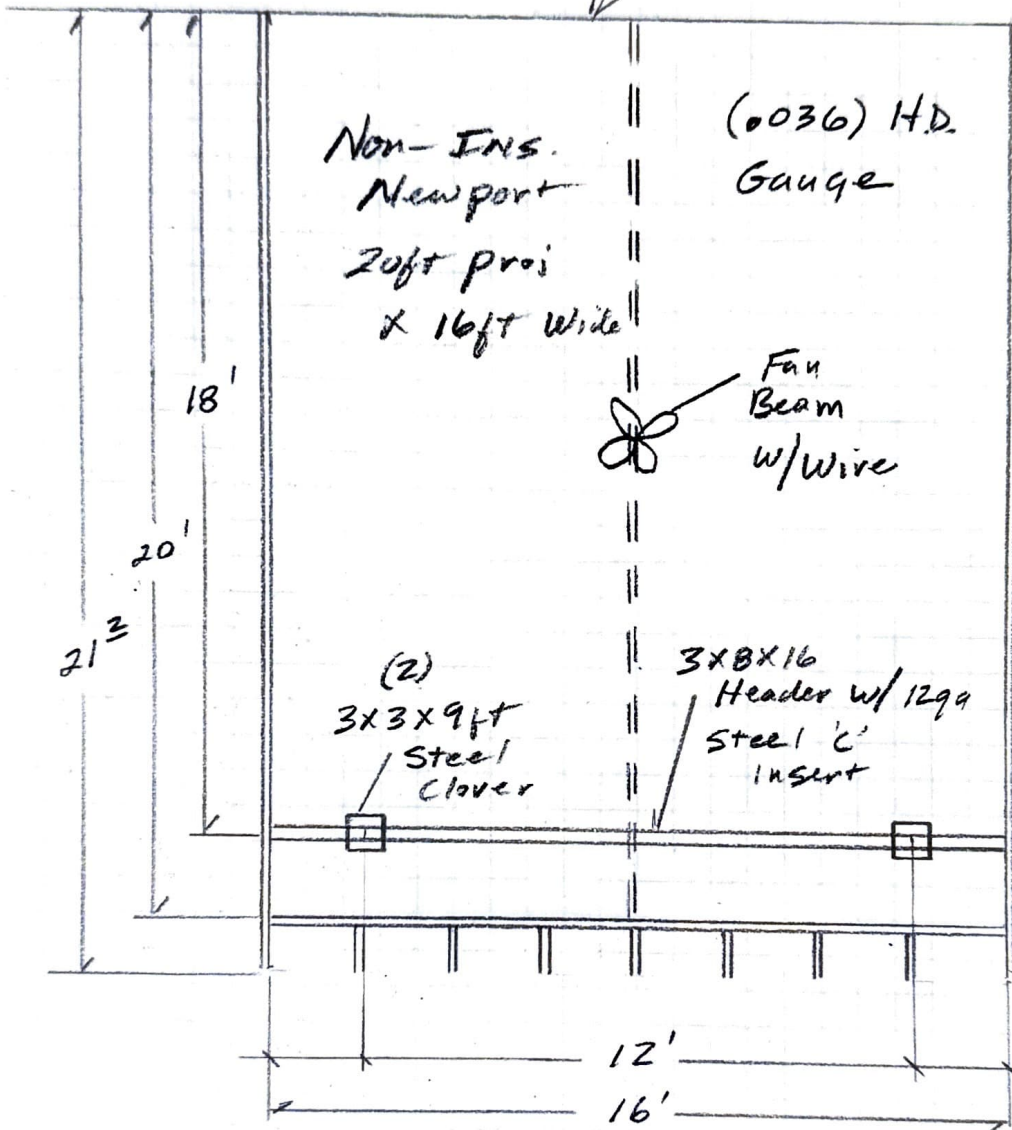 Non-Ins.
Newport
20ft proj
x 16ft Wide
(.036) H.D.
Gauge
Fan
Beam
w/Wire
18'
20'
21³
(2)
3x3x9ft
Steel
Clover
3x8x16
Header w/ 12ga
Steel 'C'
Insert
12'
16'